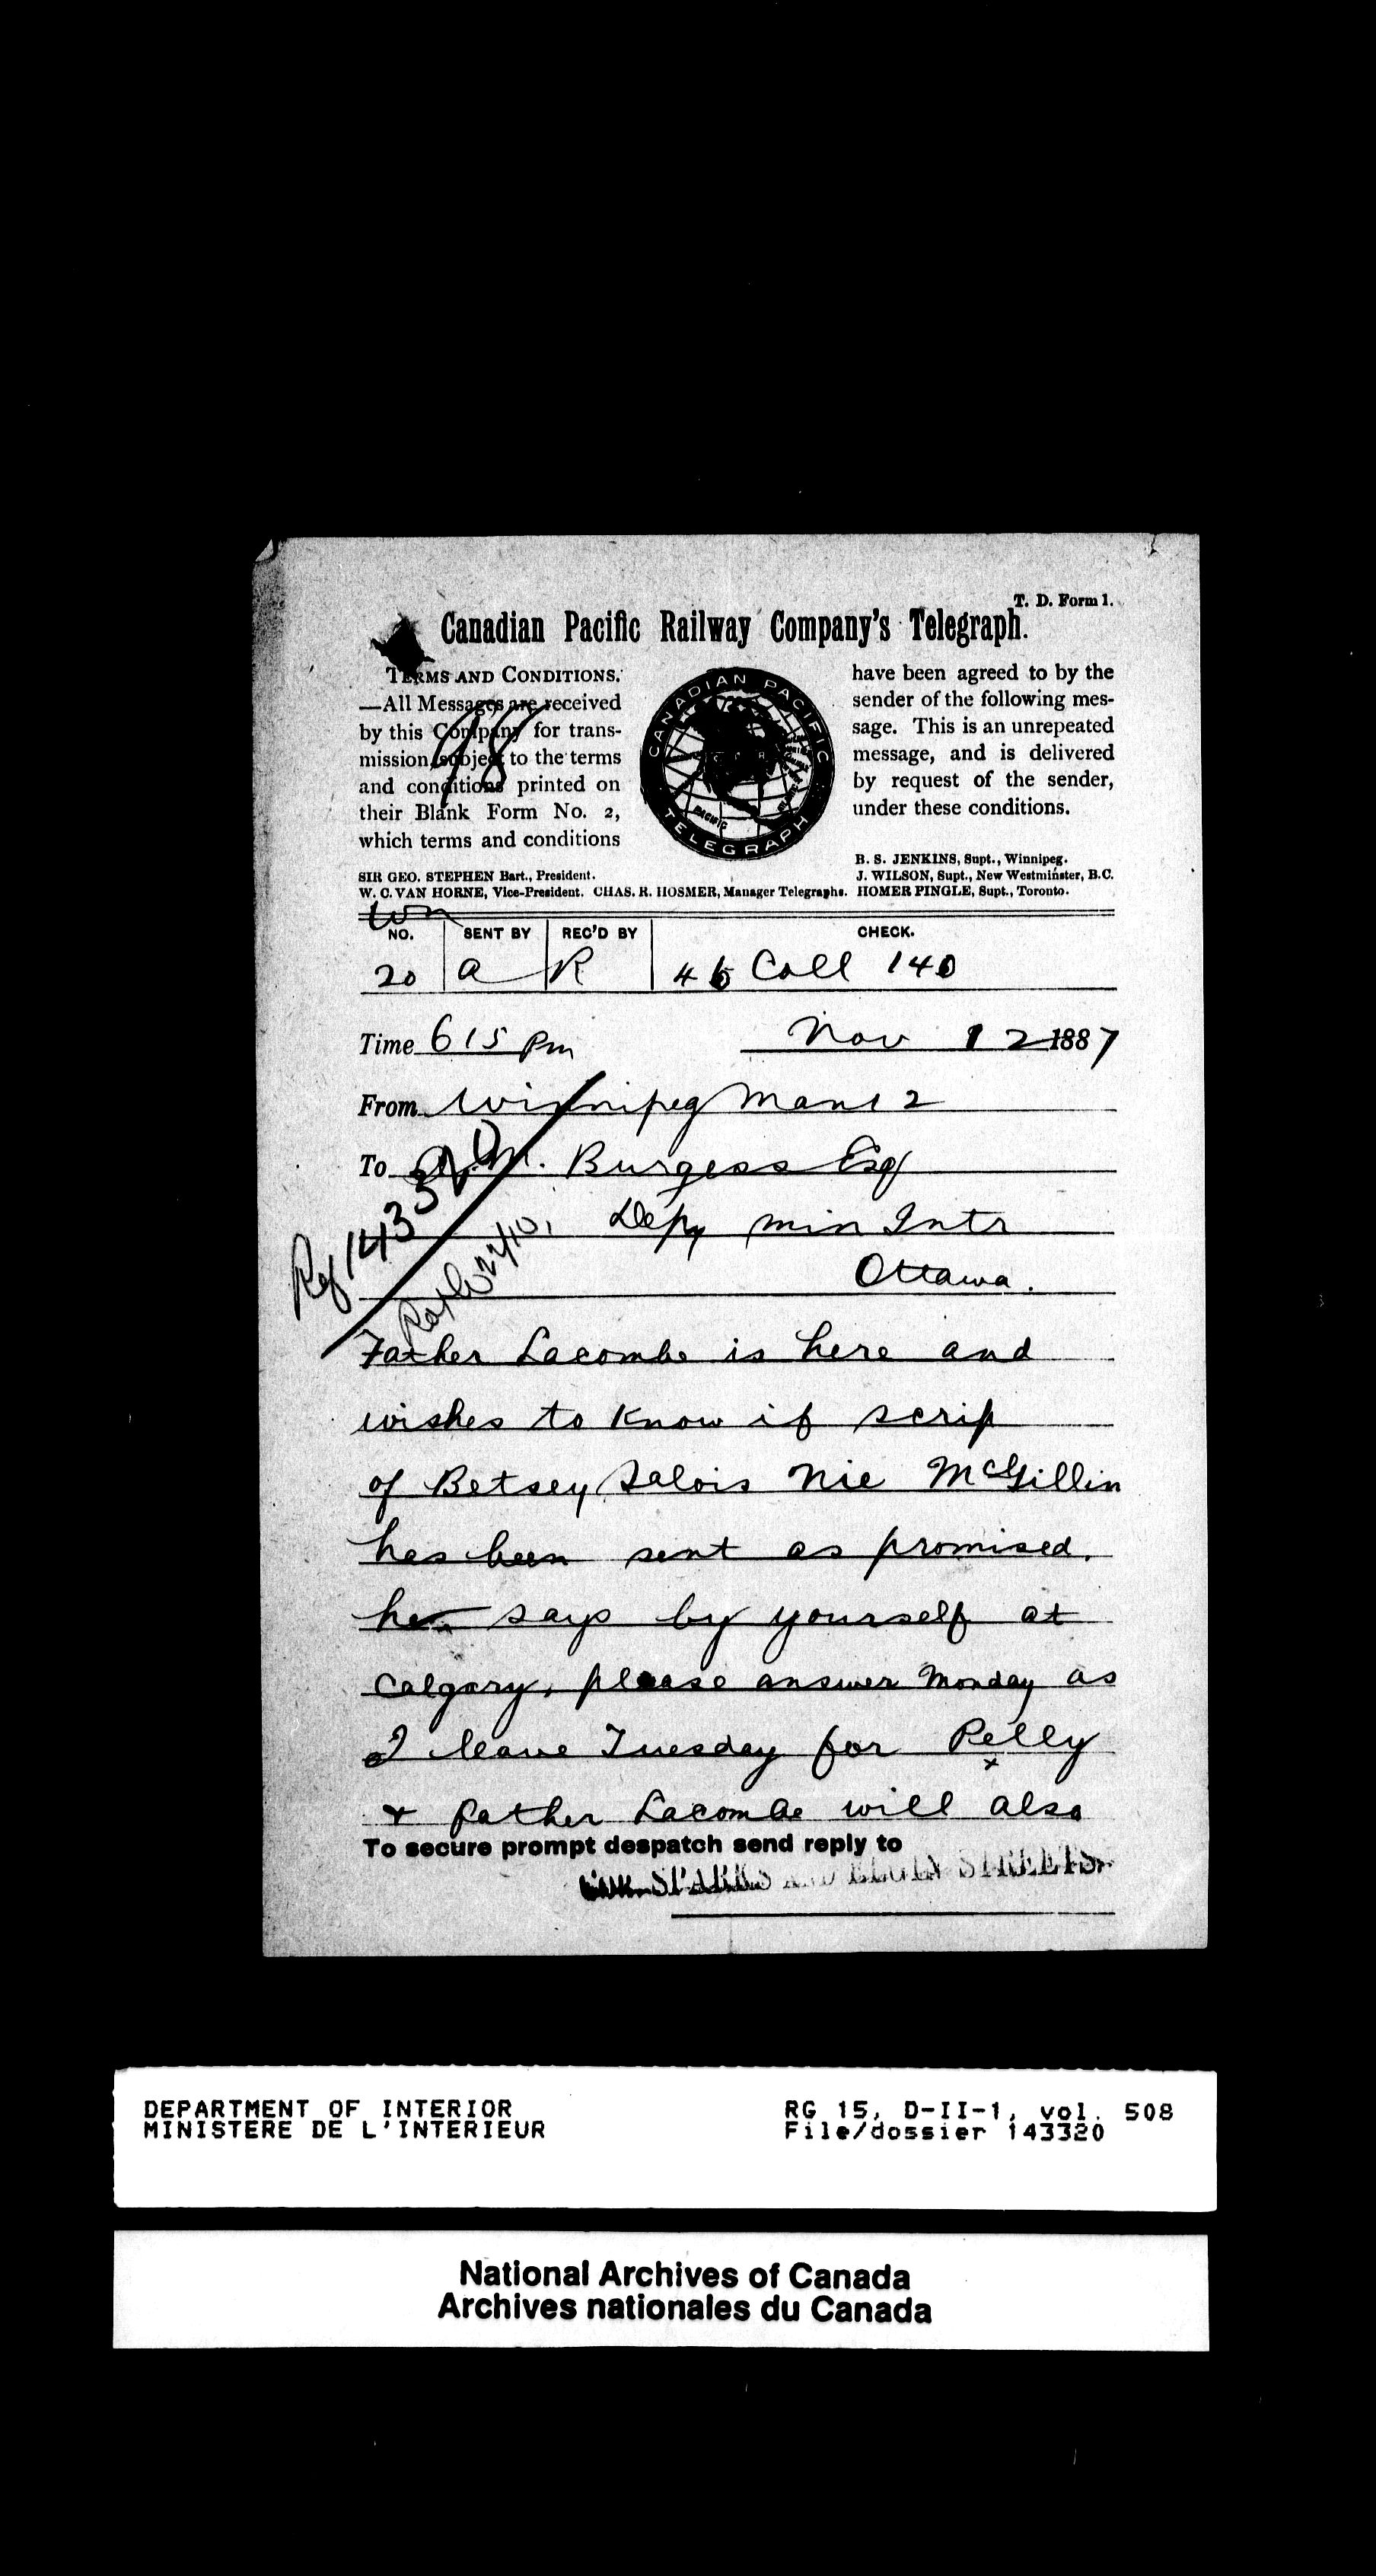 T. D. Form 1.
Canadian Pacific Railway Company's Telegraph.
TERMS AND CONDITIONS.
—All Messages are received
by this Company for trans-
mission, subject to the terms
and conditions printed on
their Blank Form No. 2,
which terms and conditions
98
CANADIAN PACIFIC
TELEGRAPH
have been agreed to by the
sender of the following mes-
sage. This is an unrepeated
message, and is delivered
by request of the sender,
under these conditions.
B. S. JENKINS, Supt., Winnipeg.
SIR GEO. STEPHEN Bart., President.
J. WILSON, Supt., New Westminster, B.C.
W. C. VAN HORNE, Vice-President. CHAS. R. HOSMER, Manager Telegraphs. HOMER PINGLE, Supt., Toronto.
Wn
NO. SENT BY REC'D BY CHECK.
20 a R 46 Coll 140
Time 615 Pm Nov 12 1887
From Winnipeg Man 12
To A. M. Burgess Esq
Depy min Intr
Ottawa.
Ref 143320
Father Lacombe is here and
wishes to know if scrip
of Betsey Salois Nie McGillin
has been sent as promised.
he says by yourself at
Calgary, please answer Monday as
I leave Tuesday for Pelly
x
+ father Lacombe will also
To secure prompt despatch send reply to
SPARKS AND ELGIN STREETS.
DEPARTMENT OF INTERIOR
MINISTERE DE L'INTERIEUR
RG 15, D-II-1, vol. 508
File/dossier 143320
National Archives of Canada
Archives nationales du Canada